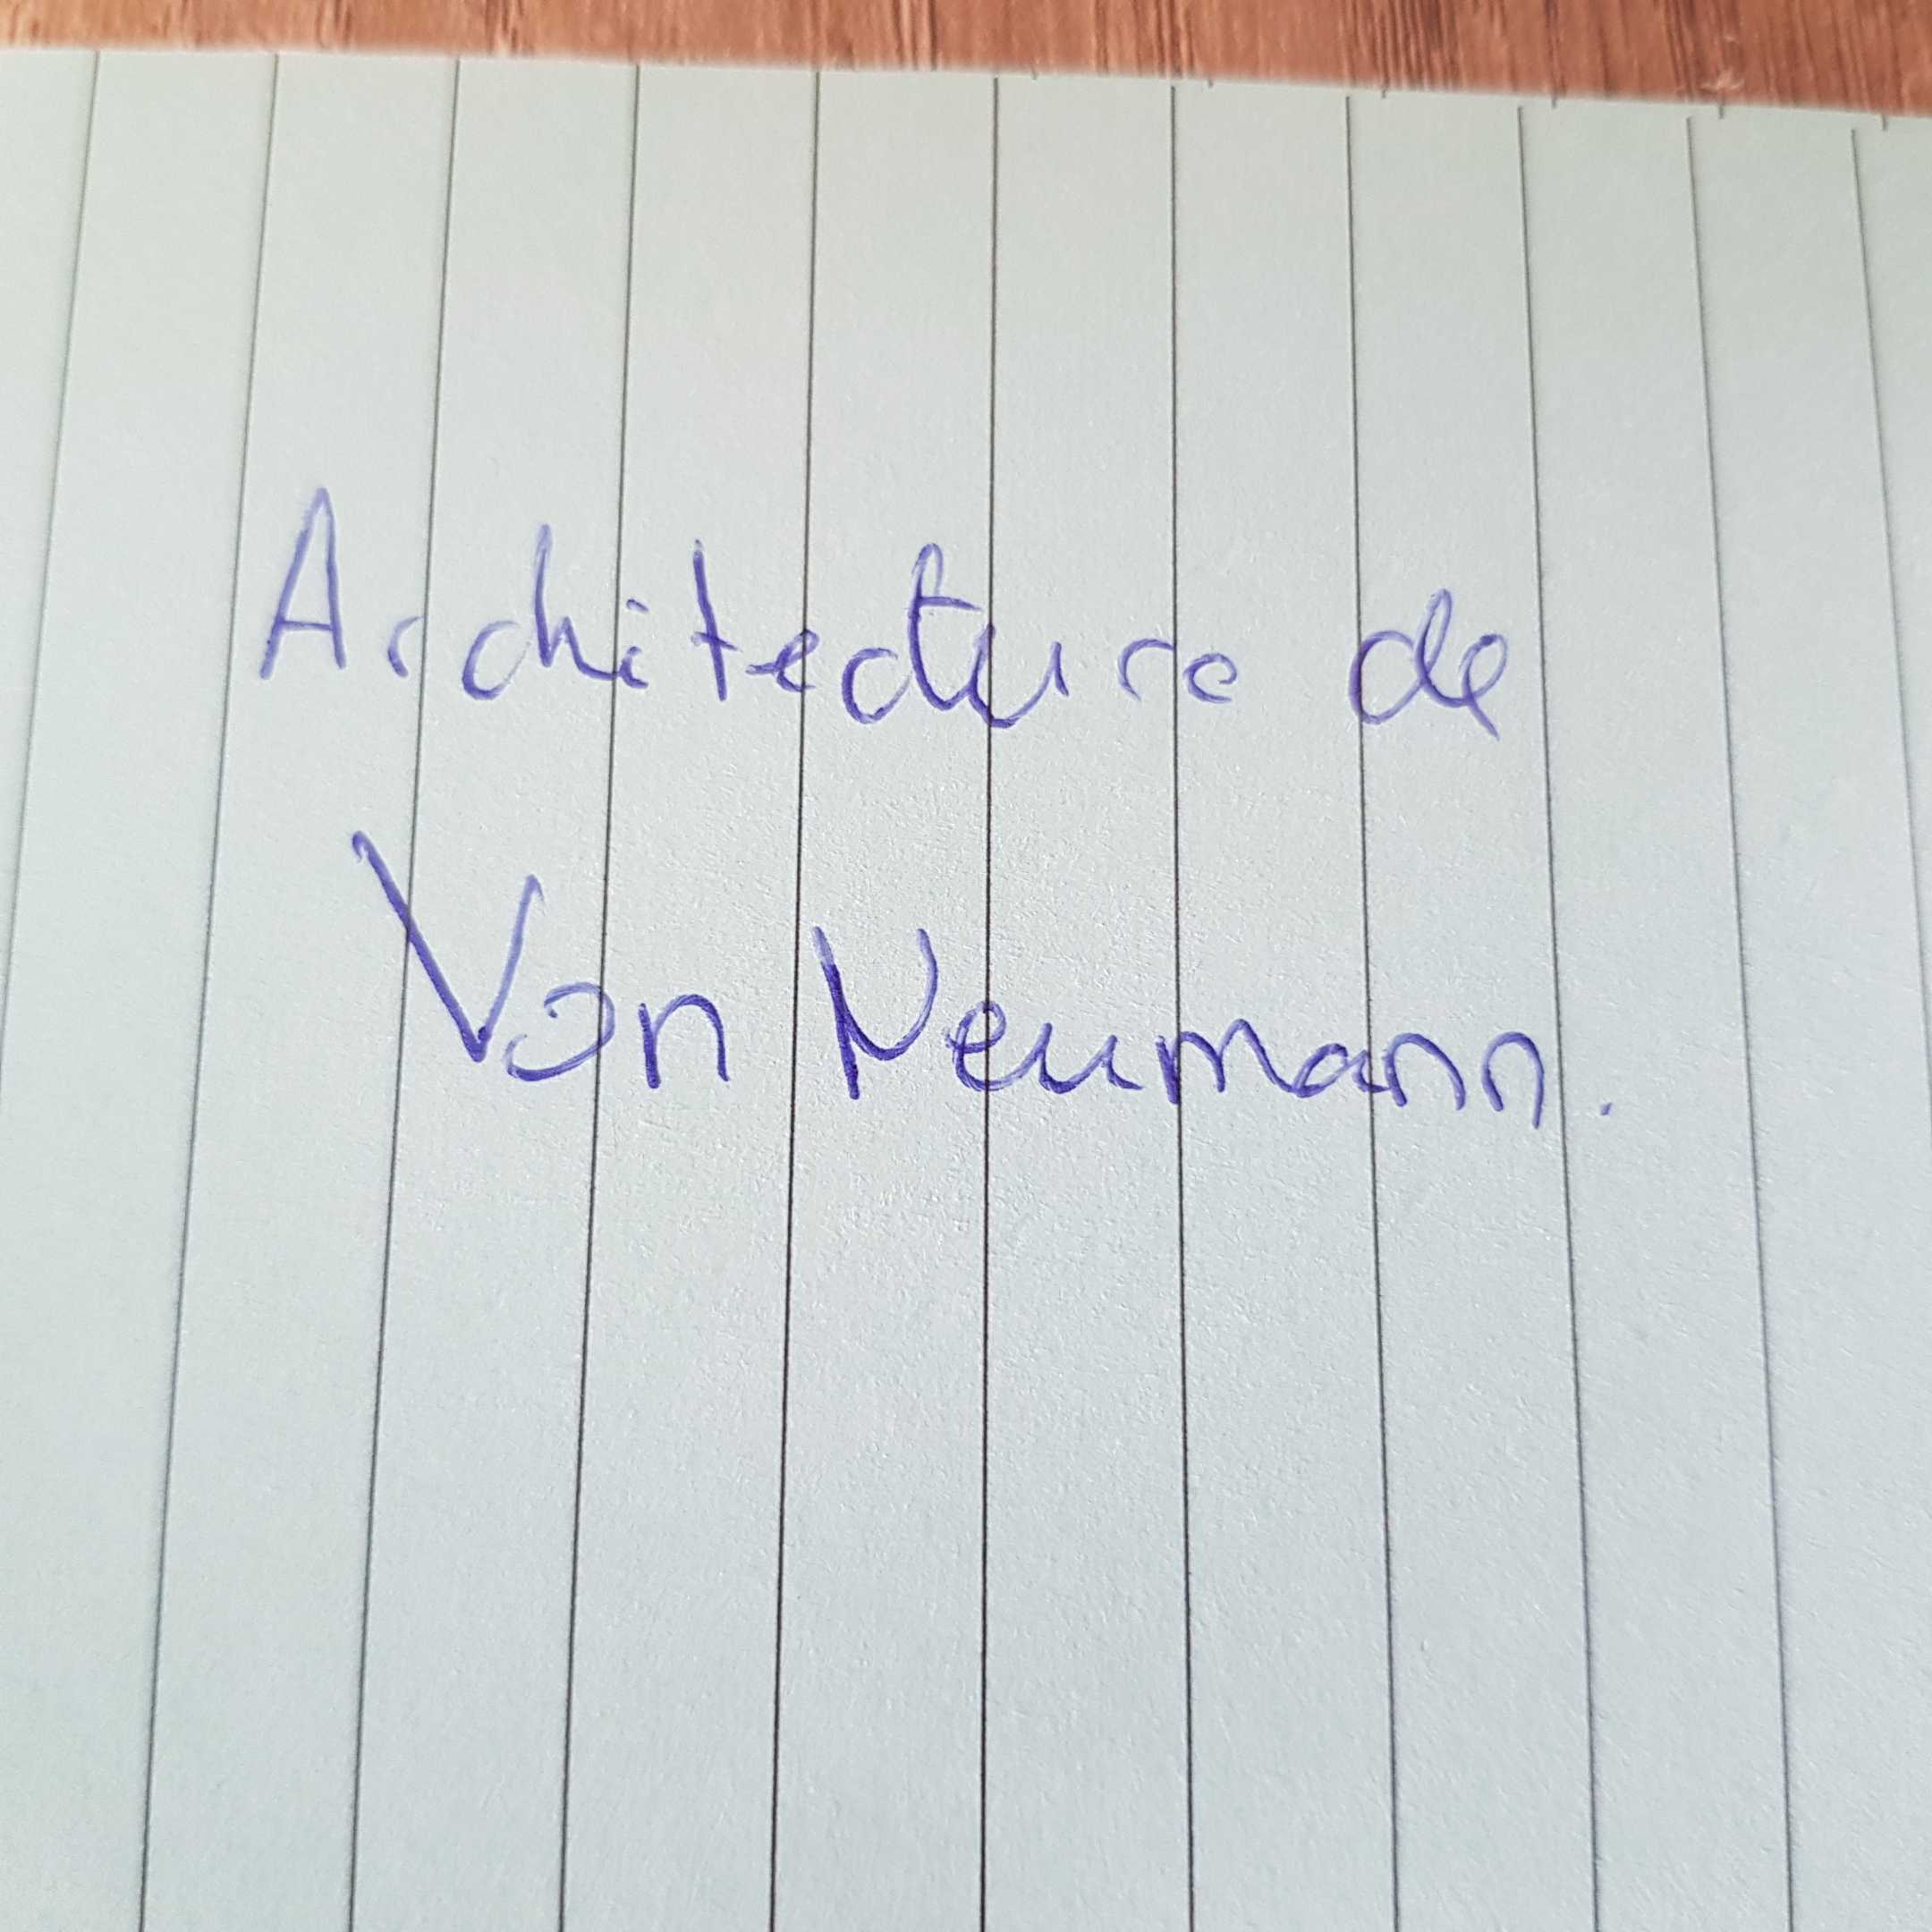 Architecture de
Von Neumann.